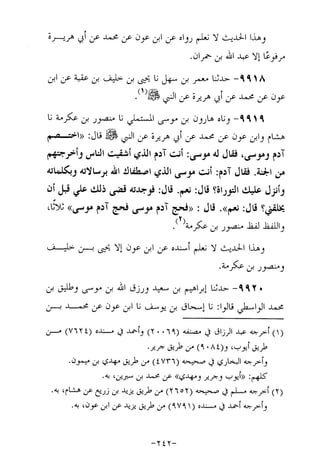 وهذا الحديث لا نعلم رواه عن ابن عون عن محمد عن أبي هريـــرة
مرفوعًا إلا عبد الله بن حمران.
٩٩١٨- حدثنا معمر بن سهل نا يحيى بن خليف بن عقبة عن ابن
عون عن محمد عن أبي هريرة عن النبي ﷺ(١).
٩٩١٩- وناه هارون بن موسى المستملي نا منصور بن عكرمة نا
هشام وابن عون عن محمد عن أبي هريرة عن النبي ﷺ قال: ((اختـــصم
آدم وموسى، فقال له موسى: أنت آدم الذي أشقيت الناس وأخرجتهم
من الجنة. فقال آدم: أنت موسى الذي اصطفاك الله برسالاته وبكلماته
وأنزل عليك التوراة؟ قال: نعم. قال: فوجدته قضى ذلك علي قبل أن
يخلقني؟ قال: نعم)). قال : ((فحج آدم موسى فحج آدم موسى)) ثلاثًا،
واللفظ لفظ منصور بن عكرمة(٢).
وهذا الحديث لا نعلم أسنده عن ابن عون إلا يحيى بـــن خليـــف
ومنصور بن عكرمة.
٩٩٢٠- حدثنا إبراهيم بن سعيد ورزق الله بن موسى وطليق بن
محمد الواسطي قالوا: نا إسحاق بن يوسف نا ابن عون عن محمـــد بـــن
(١) أخرجه عبد الرزاق في مصنفه (٢٠٠٦٩) وأحمد في مسنده (٧٦٢٤) مـــن
طريق أيوب، و(٩٠٨٤) من طريق جرير.
وأخرجه البخاري في صحيحه (٤٧٣٦) من طريق مهدي بن ميمون.
كلهم: ((أيوب وجرير ومهدي)) عن محمد بن سيرين، به.
(٢) أخرجه مسلم في صحيحه (٢٦٥٢) من طريق يزيد بن زريع عن هشام، به.
وأخرجه أحمد في مسنده (٩٧٩١) من طريق يزيد عن ابن عون، به.
-٢٤٢-